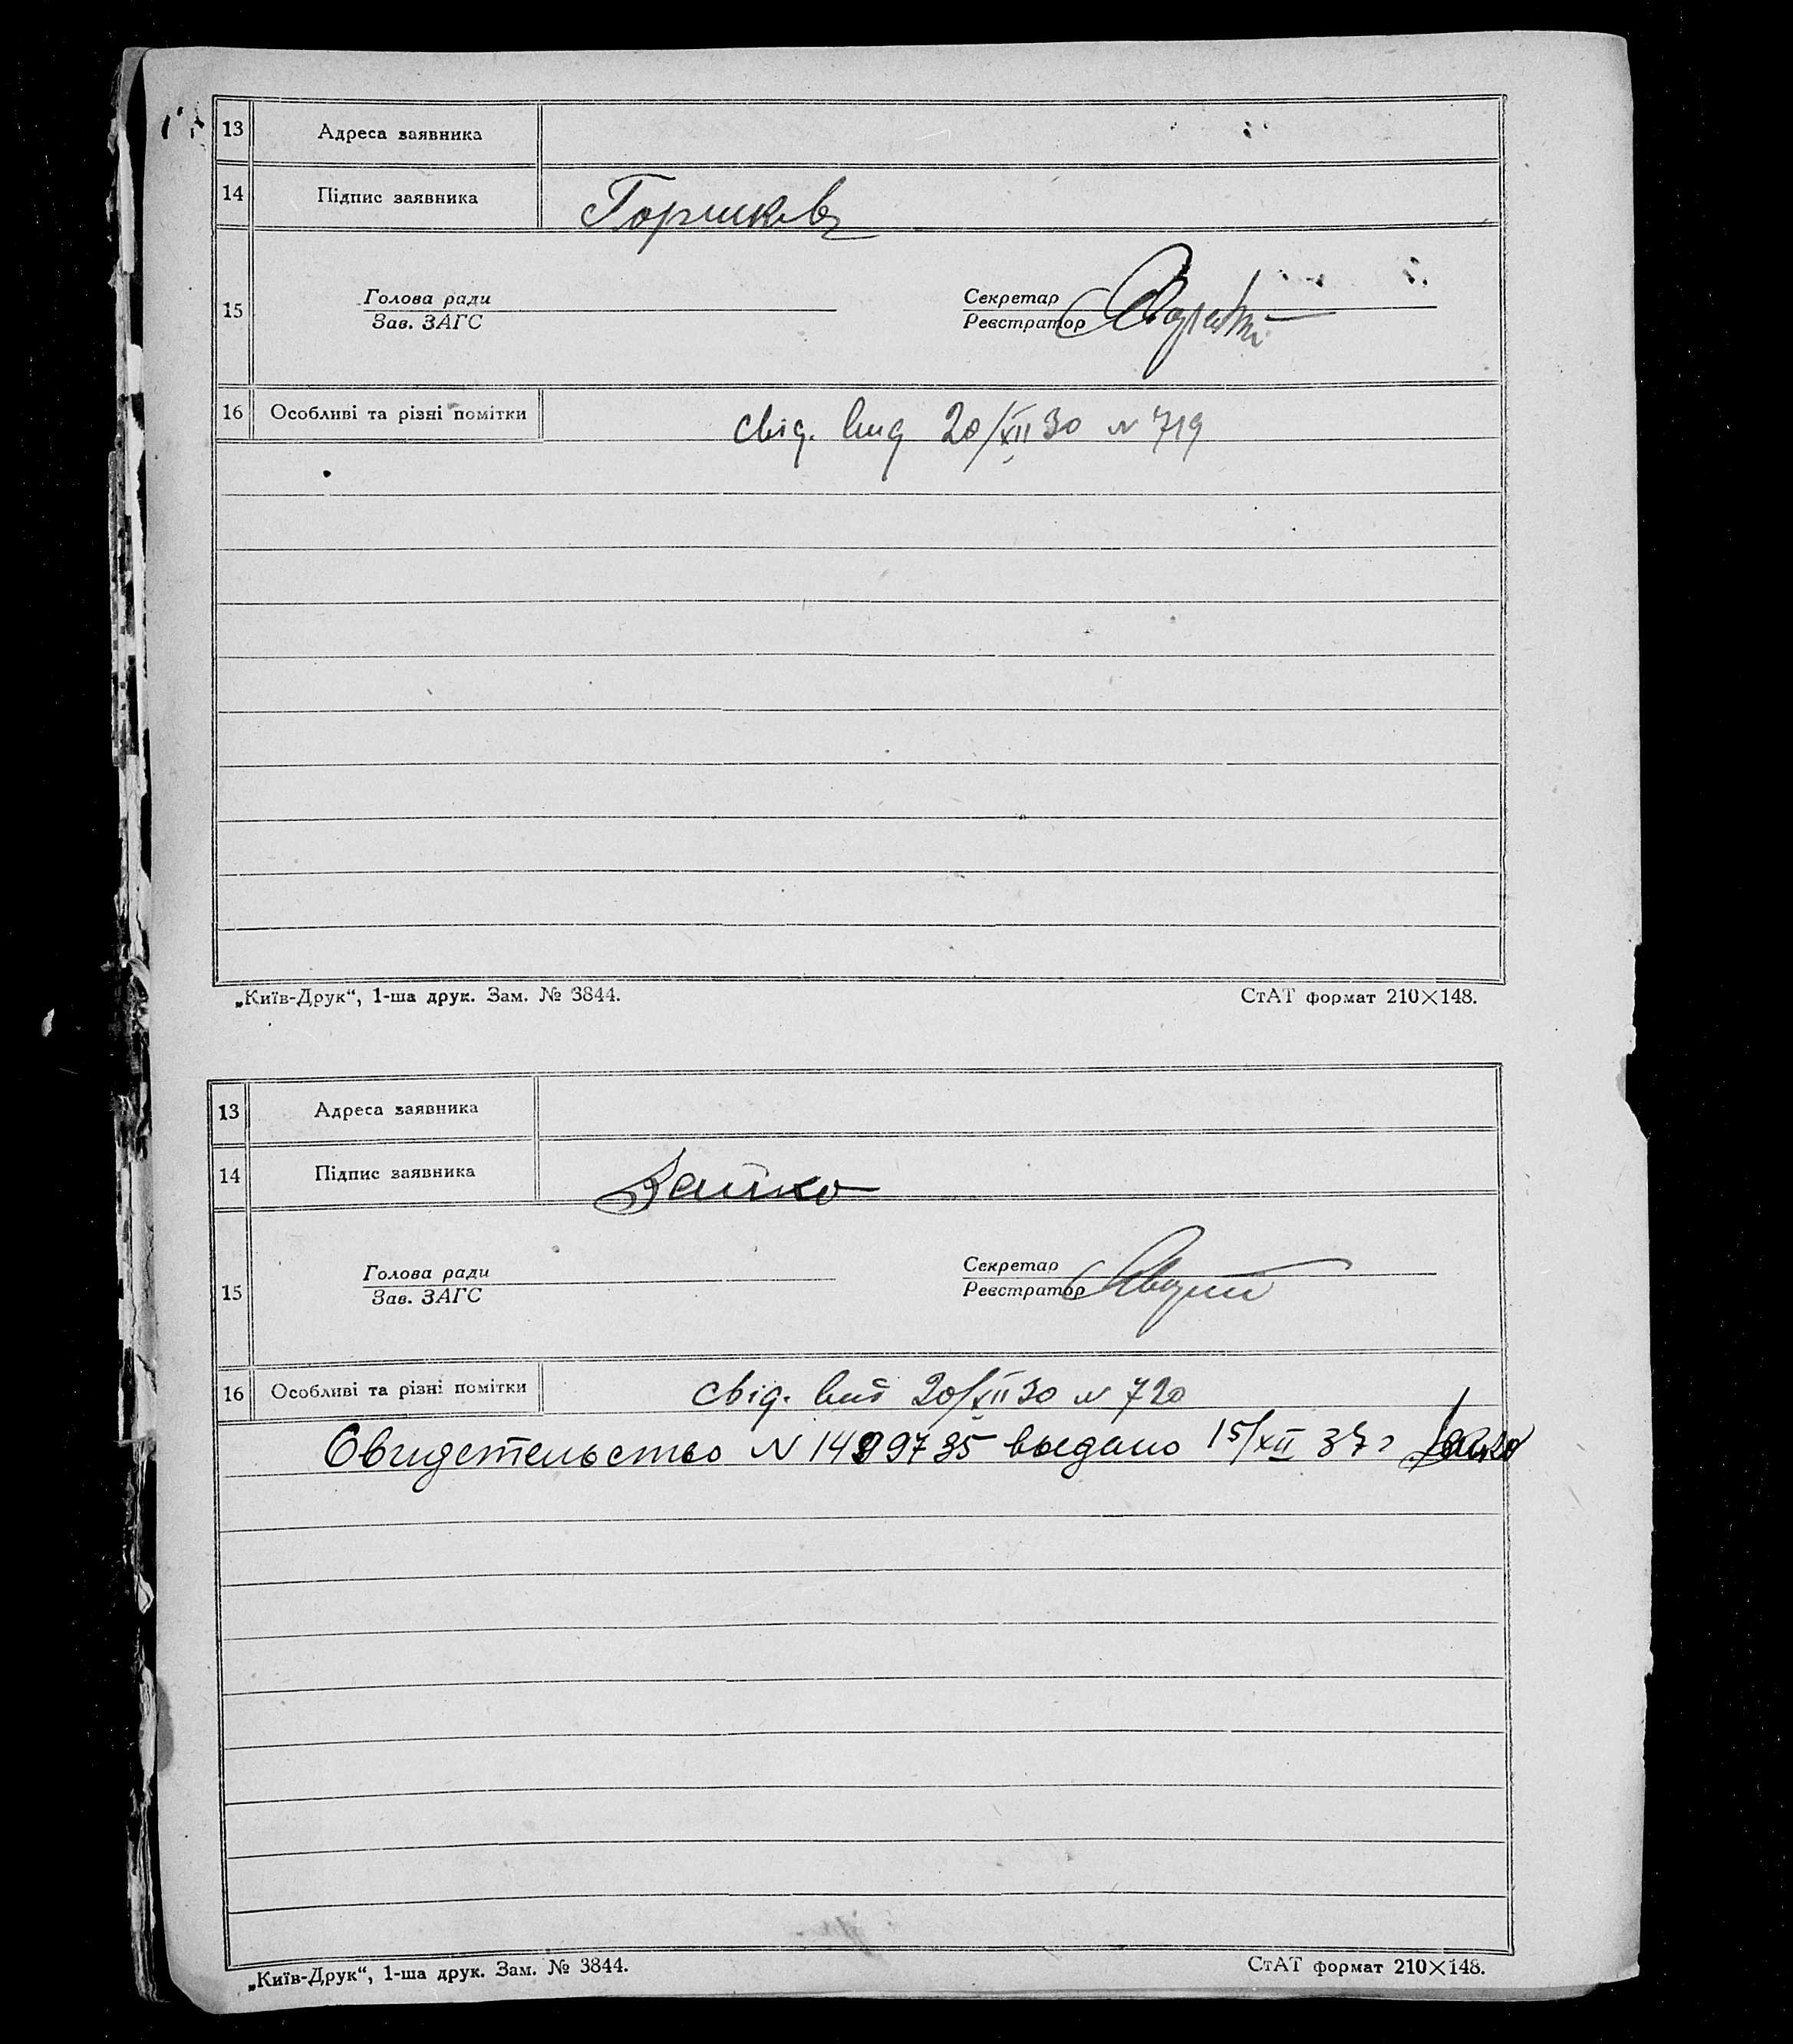 13 Адреса заявника
14 Підпис заявника Горшков
Голова ради Секретар
15
Зав. ЗАГС Реєстратор
16 Особливі та різні помітки свід. вид 20/XII 30 N 719
„Київ-Друк“, 1-ша друк. Зам. № 3844. СтАТ формат 210×148.
13 Адреса заявника
14 Підпис заявника
Голова ради Секретар
15
Зав. ЗАГС Реєстратор
16 Особливі та різні помітки свід. вид 20/XII 30 N 720
Свидетельство N 1499735 выдано 15/XII 37 г
„Київ-Друк“, 1-ша друк. Зам. № 3844. СтАТ формат 210×148.